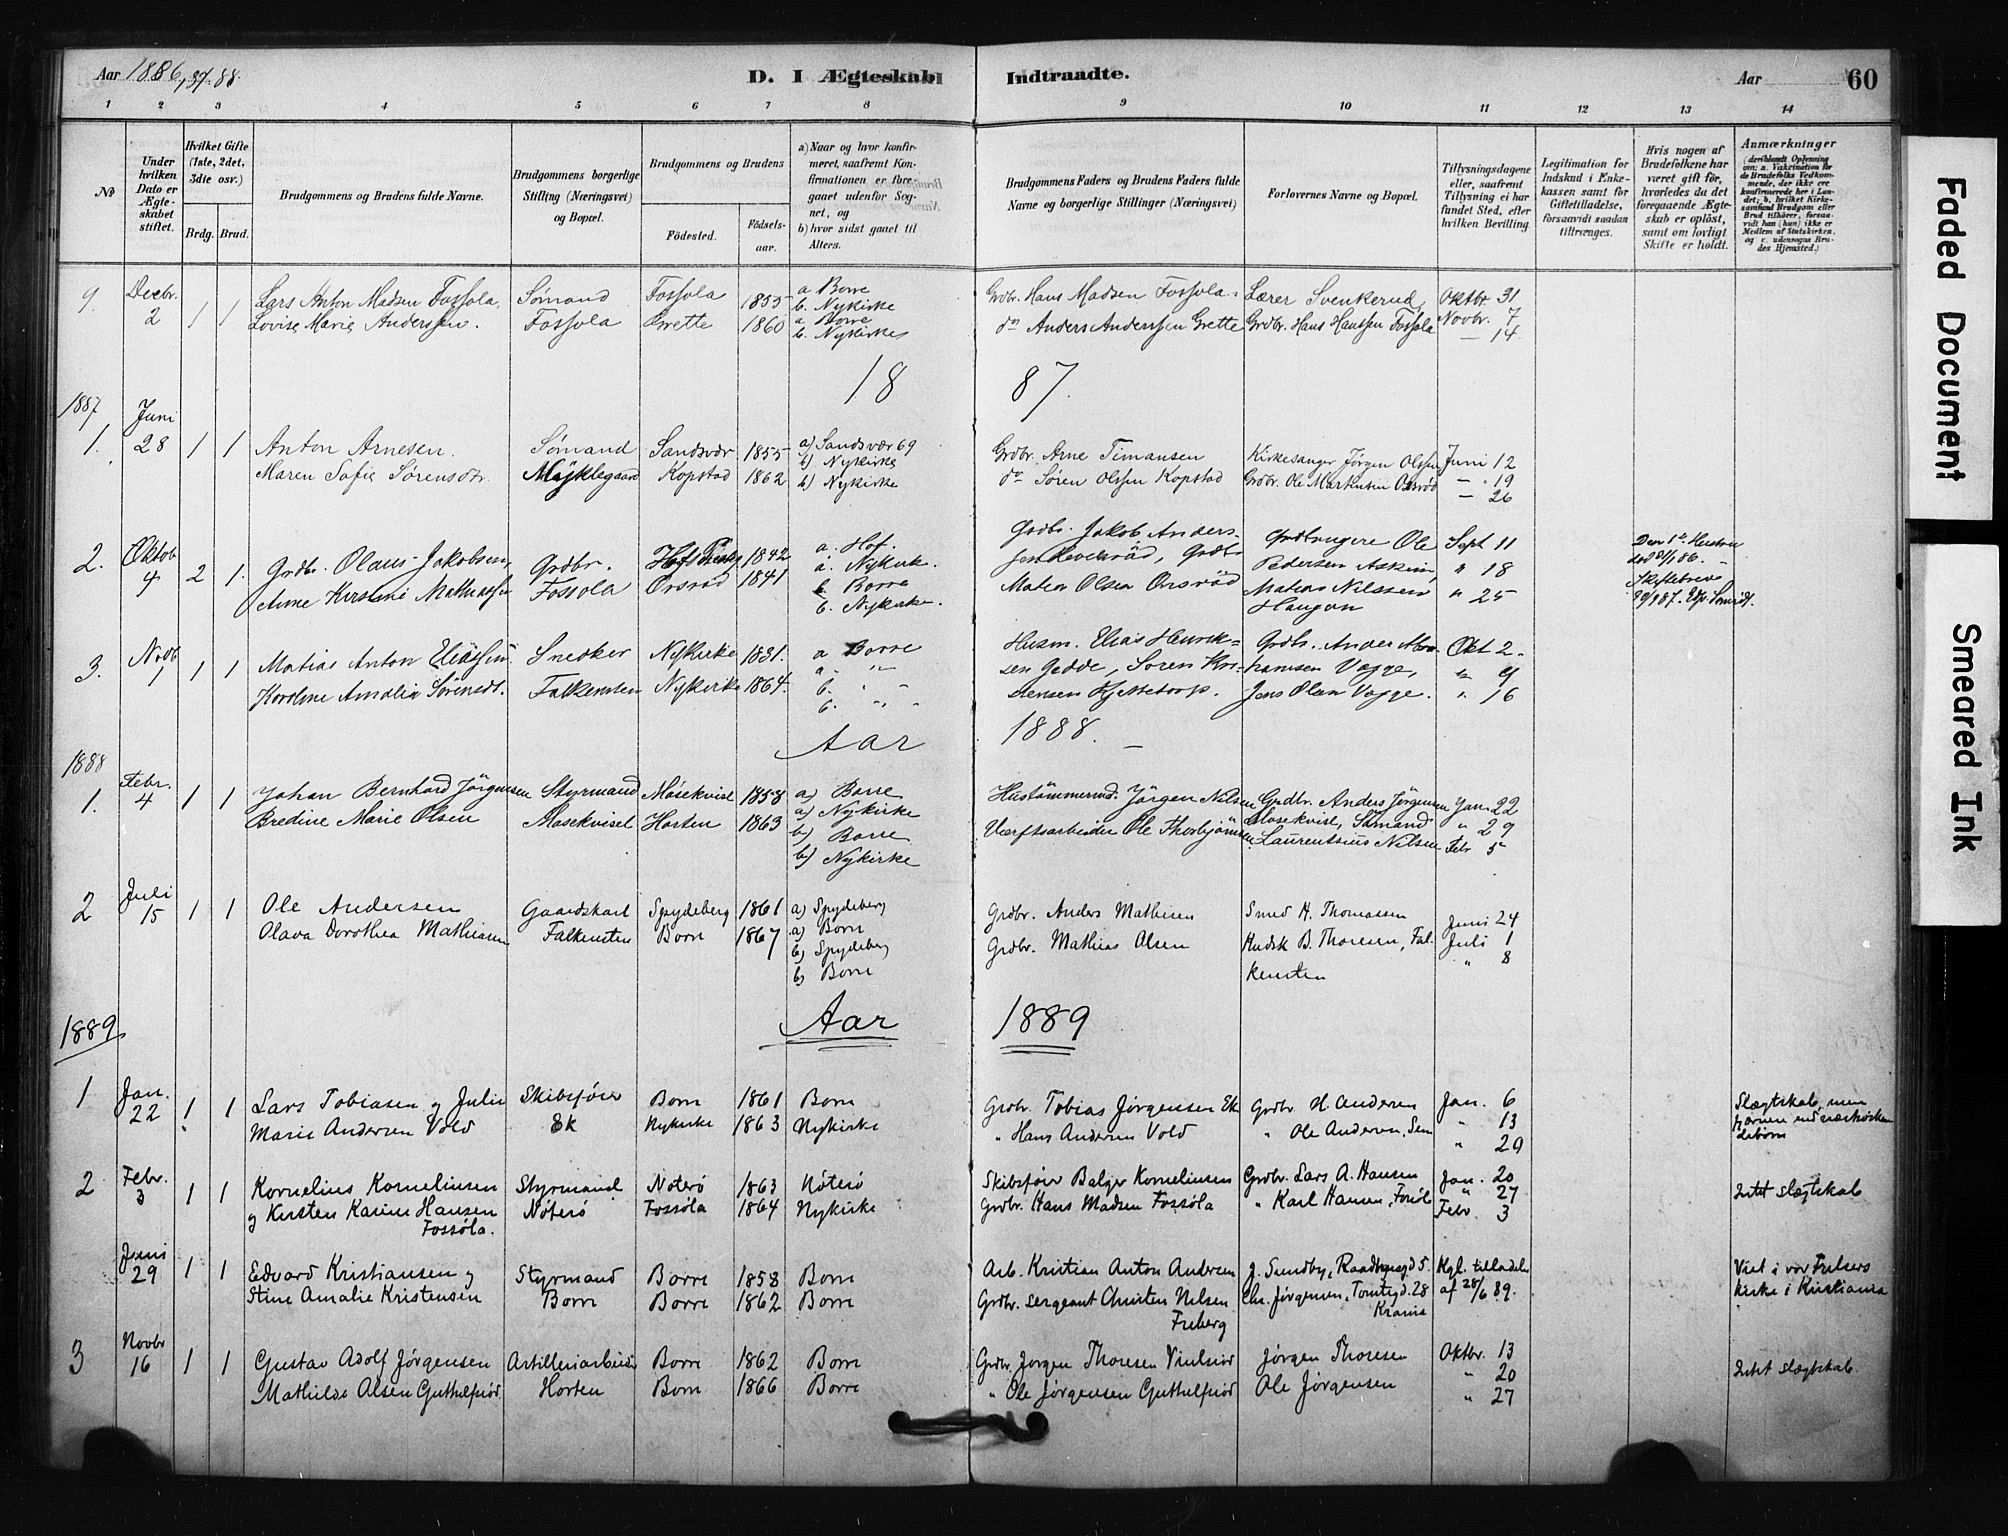 Aar 1886, 87. 88.
D. I Ægteskab
Indtraadte.
Aar
60
1 2 3 4 5 6 7 8 9 10 11 12 13 14
No
Under hvilken Dato er Ægteskabet stiftet.
Hvilket Gifte (1ste, 2det, 3die osv.)
Brdg. Brud.
Brudgommens og Brudens fulde Navne.
Brudgommens borgerlige Stilling (Næringsvei) og Bopæl.
Brudgommens og Brudens
Fødested.
Fødselsaar.
a) Naar og hvor konfirmeret, saafremt Konfirmationen er foregaaet udenfor Sognet, og
b) hvor sidst gaaet til Alters.
Brudgommens Faders og Brudens Faders fulde Navne og borgerlige Stillinger (Næringsvei)
Forlovernes Navne og Bopæl.
Tillysningsdagene eller, saafremt Tillysning ei har fundet Sted, efter hvilken Bevilling.
Legitimation for Indskud i Enkekassen samt for Giftetilladelse, forsaavidt saadan tiltrænges.
Hvis nogen af Brudefolkene har været gift før, hvorledes da det foregaaende Ægteskab er opløst, samt om lovligt Skifte er holdt.
Anmærkninger
9. Decbr. 2 1 1 Lars Anton Madsen Fossola. Sømand Fossola 1855 a Borre b. Nykirke Grdbr. Hans Madsen Fossola. Lærer Svenkerud Oktbr. 31
Lovise Marie Anderssen. Fossola Grette 1860 a. Borre b. Nykirke do Anders Anderssen Grette Grdbr. Hans Hanssen Fossola Novbr. 7
— 14.
18 87.
1887
1. Juni 28 1 1 Anton Arnesen. Sømand Sandsvær 1855 a) Sandsvær 69 b) Nykirke Grdbr. Arne Timansen Kirkesanger Jørgen Olssen Juni 12
Maren Sofie Sørensdtr. Kopstad 1862 b) Nykirke do Søren Olssen Kopstad Grdbr. Ole Martinsen — 19
— 26
2. Oktob 4 2 1. Grdbr. Olaus Jakobsen, Grdbr. 1842 a. Hof. Grdbr. Jakob Anders- Grdbrugere Ole Sept 11
Anne Kirstine Mathiassen Fossola Orsrød 1841 a. Nykirke. b Borre b. Nykirke. Matias Olsen Orsrød Pedersen Askim, " 18
Matias Nilssen Haugan " 25
Den 1e Hustru død
Skiftebrev
3. Novb 1 1 1 Matias Anton Eliassen Snedker Nykirke 1831. a Borre Husm. Elias Henrik- Grdb. Ander Okt 2.
Karoline Amalia Sørensdt. Falkensten Nykirke 1864. sen Gedde, Søren Kri- Vagge, " 9
stensen Jens Olsen Vagge. " 16
Aar 1888.
1888
1. Febr. 4 1 1 Johan Bernhard Jörgensen Styrmand Måsekvisl 1858 a) Borre a) Nykirke Hustømmermd. Jörgen Nilsen Grdbr. Anders Jörgensen Jan. 22
Bredine Marie Olsen Masekvisel Horten 1863 b) Borre b) Nykirke Værftsarbeider Ole Thorbjörnsen Masekvisl, Sömand Laurentsius Nilsen " 29
Febr 5
2 Juli 15 1 1 Ole Andersen Gaardskarl Spydeberg 1861 a) Spydeberg Grdbr. Anders Mathisen Smed H. Thomassen Juni 24
Olava Dorothea Mathiasen Falkensten Borre 1867 a) Borre b) Spydeberg b) Borre Grdbr. Mathias Olsen Husk B. Thoresen, Falkensten Juli 1
" 8
1889 Aar 1889
1 Jan. 22 1 1 Lars Tobiasen og Julie Skibsfører Borre 1861 Borre Grdbr. Tobias Jørgensen Ek Grdbr H. Andersen Jan. 6
Marie Andersen Vold Ek Nykirke 1863 Nykirke " Hans Andersen Vold " Ole Andersen, Sem " 13
" 20
Slægtskab, men
2 Febr. 3 1 1 Kornelius Kornelinsen Styrmand Nøterø 1863 Nøterø Skibsfører Balger Kornelinsen Grdbr. Lars A. Hansen Jan. 20
og Kirsten Karine Hansen Fossöla. Nøterø Fossöla 1864 Nykirke Grdbr. Hans Madsen Fossöla " Karl Hansen, " 27
Febr. 3
Intet slægtskab
Juni 29 1 1 Edvard Kristiansen og Styrmand Borre 1858 Borre Arb. Kristian Anton Andersen J. Sundby, Raadhusgd 5. Kgl. tilladelse
Stine Amalie Kristensen Borre Borre 1862 Borre Grdbr. sergeant Christen Nilsen Friberg Chr. Jørgensen, Tomtegd. 28 Krania af 28/6 89.
Viet i vor Frelsers kirke i Kristiania
3 Novbr 16 1 1 Gustav Adolf Jørgensen Artilleriarbeider Borre 1862 Borre Grdbr. Jørgen Thoresen Jørgen Thoresen Oktbr. 13
Mathilde Olsen Horten Borre 1866 Borre " Ole Jørgensen Ole Jørgensen " 20
" 27
Intet slægtskab.
Faded Document
Smeared Ink